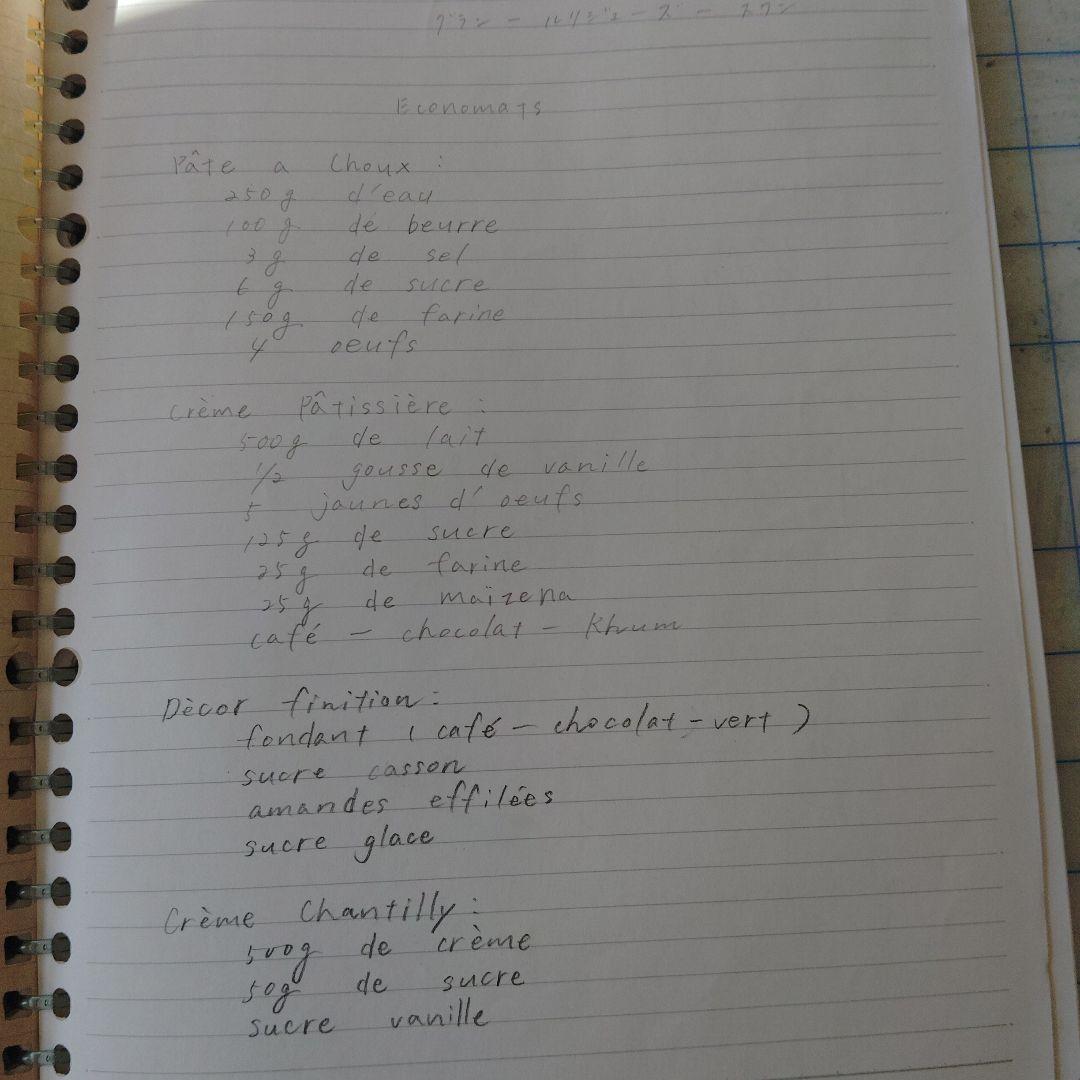 グラン ー ルリジューズ ー スワン
Economats
Pâte a Choux :
250g d'eau
100g de beurre
3g de sel
6g de sucre
150g de farine
4 oeufs
Crème Pâtissière :
500g de lait
1/2 gousse de vanille
5 jaunes d'oeufs
125g de sucre
25g de farine
25g de maïzena
café - chocolat - Rhum
Dècor finition :
fondant ( café - chocolat - vert )
sucre casson
amandes effilées
sucre glace
Crème Chantilly :
500g de crème
50g de sucre
sucre vanille